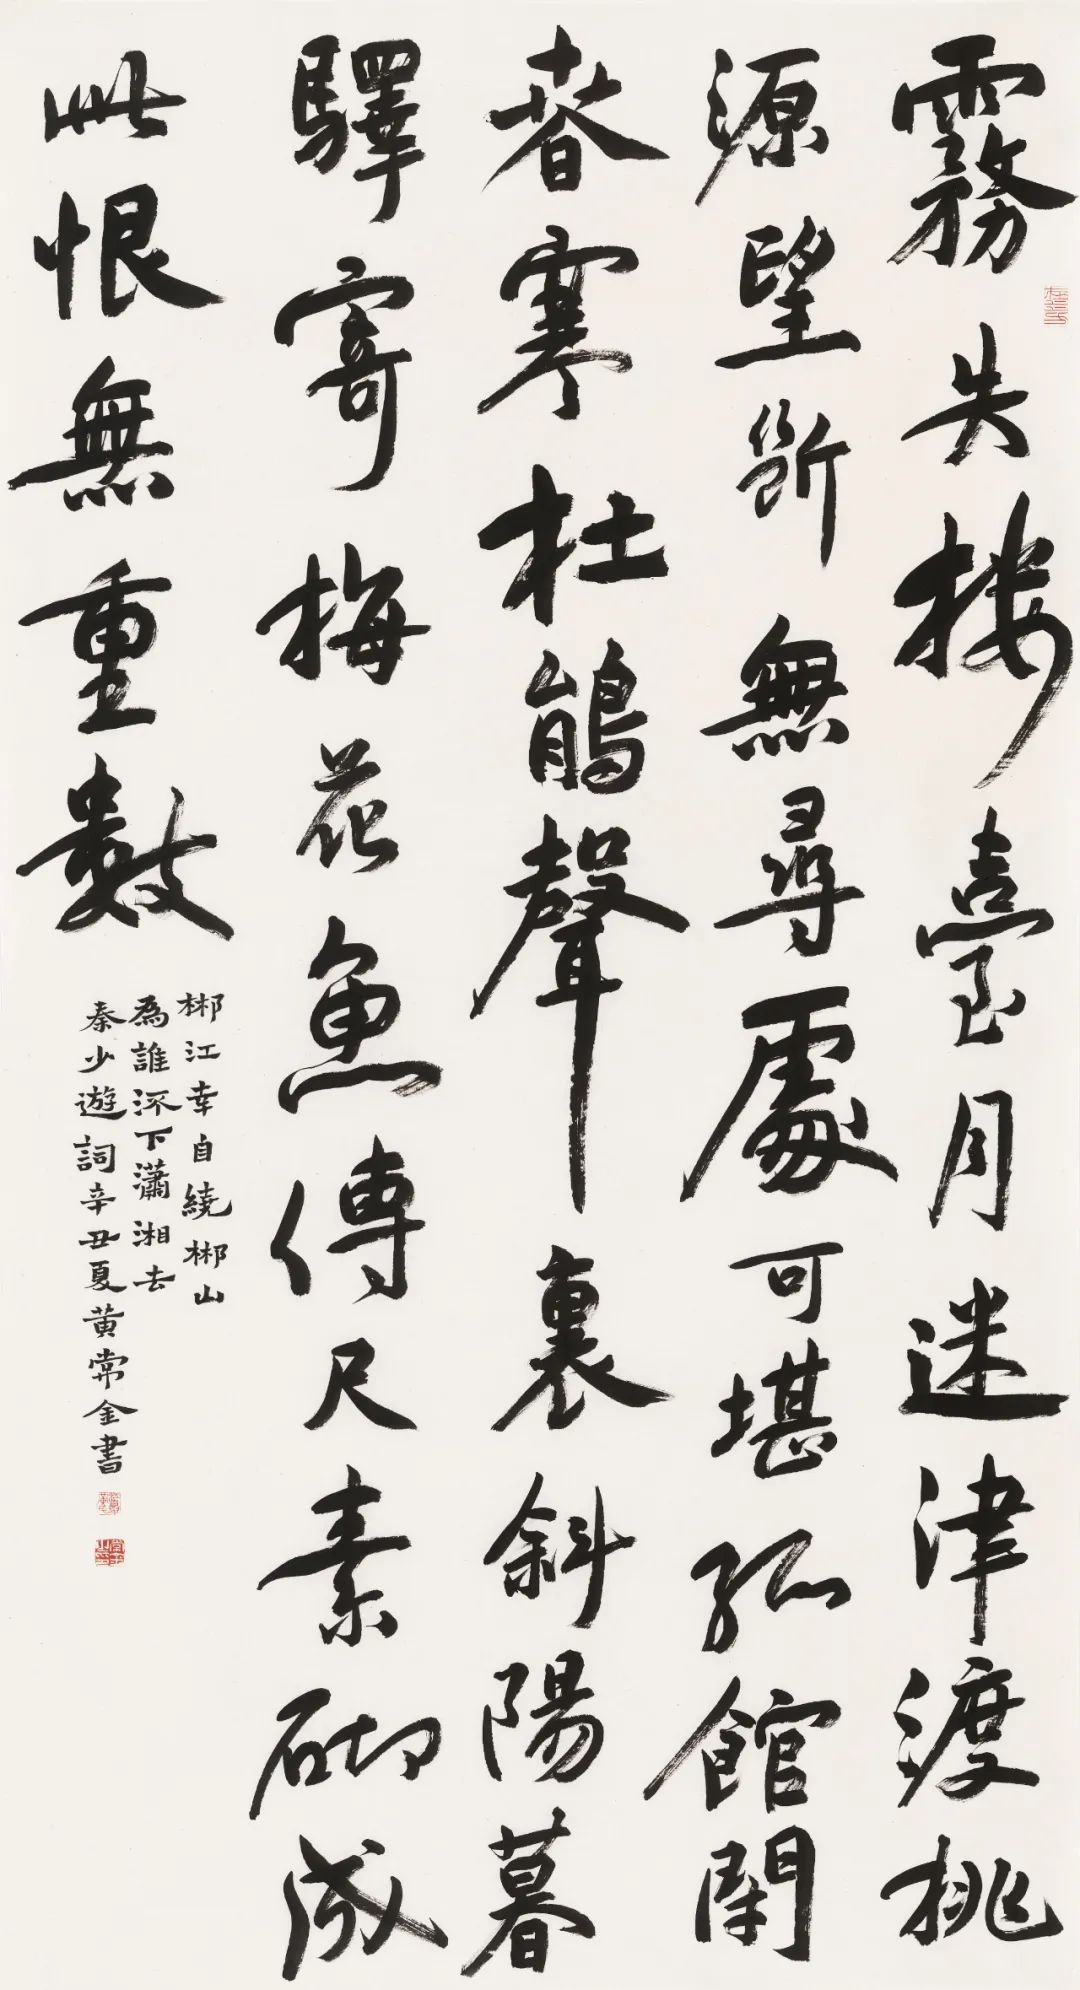 霧失楼臺月迷津渡桃
源望斷無尋處可堪孤館閉
春寒杜鵑聲裏斜陽暮
驛寄梅花魚傳尺素砌成
此恨無重數
郴江幸自繞郴山
為誰流下瀟湘去
秦少遊詞辛丑夏黄常金書